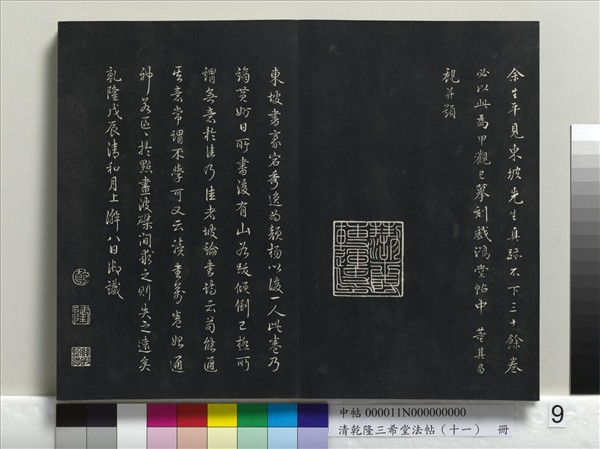 余生平見東坡先生真跡不下三十餘卷
必以此為甲觀已摹刻戲鴻堂帖中 董其昌
觀并題
東坡書豪宕秀逸為顏楊以後一人此卷乃
謫黃州日所書後有山谷跋傾倒已極所
謂無意於佳乃佳者坡論書詩云苟能通
其意常謂不學可又云讀書萬卷始通
神若區〻於點畫波磔間求之則失之遠矣
乾隆戊辰清和月上澣八日御識
乾
隆
中帖 000011N000000000
清乾隆三希堂法帖（十一） 冊
9